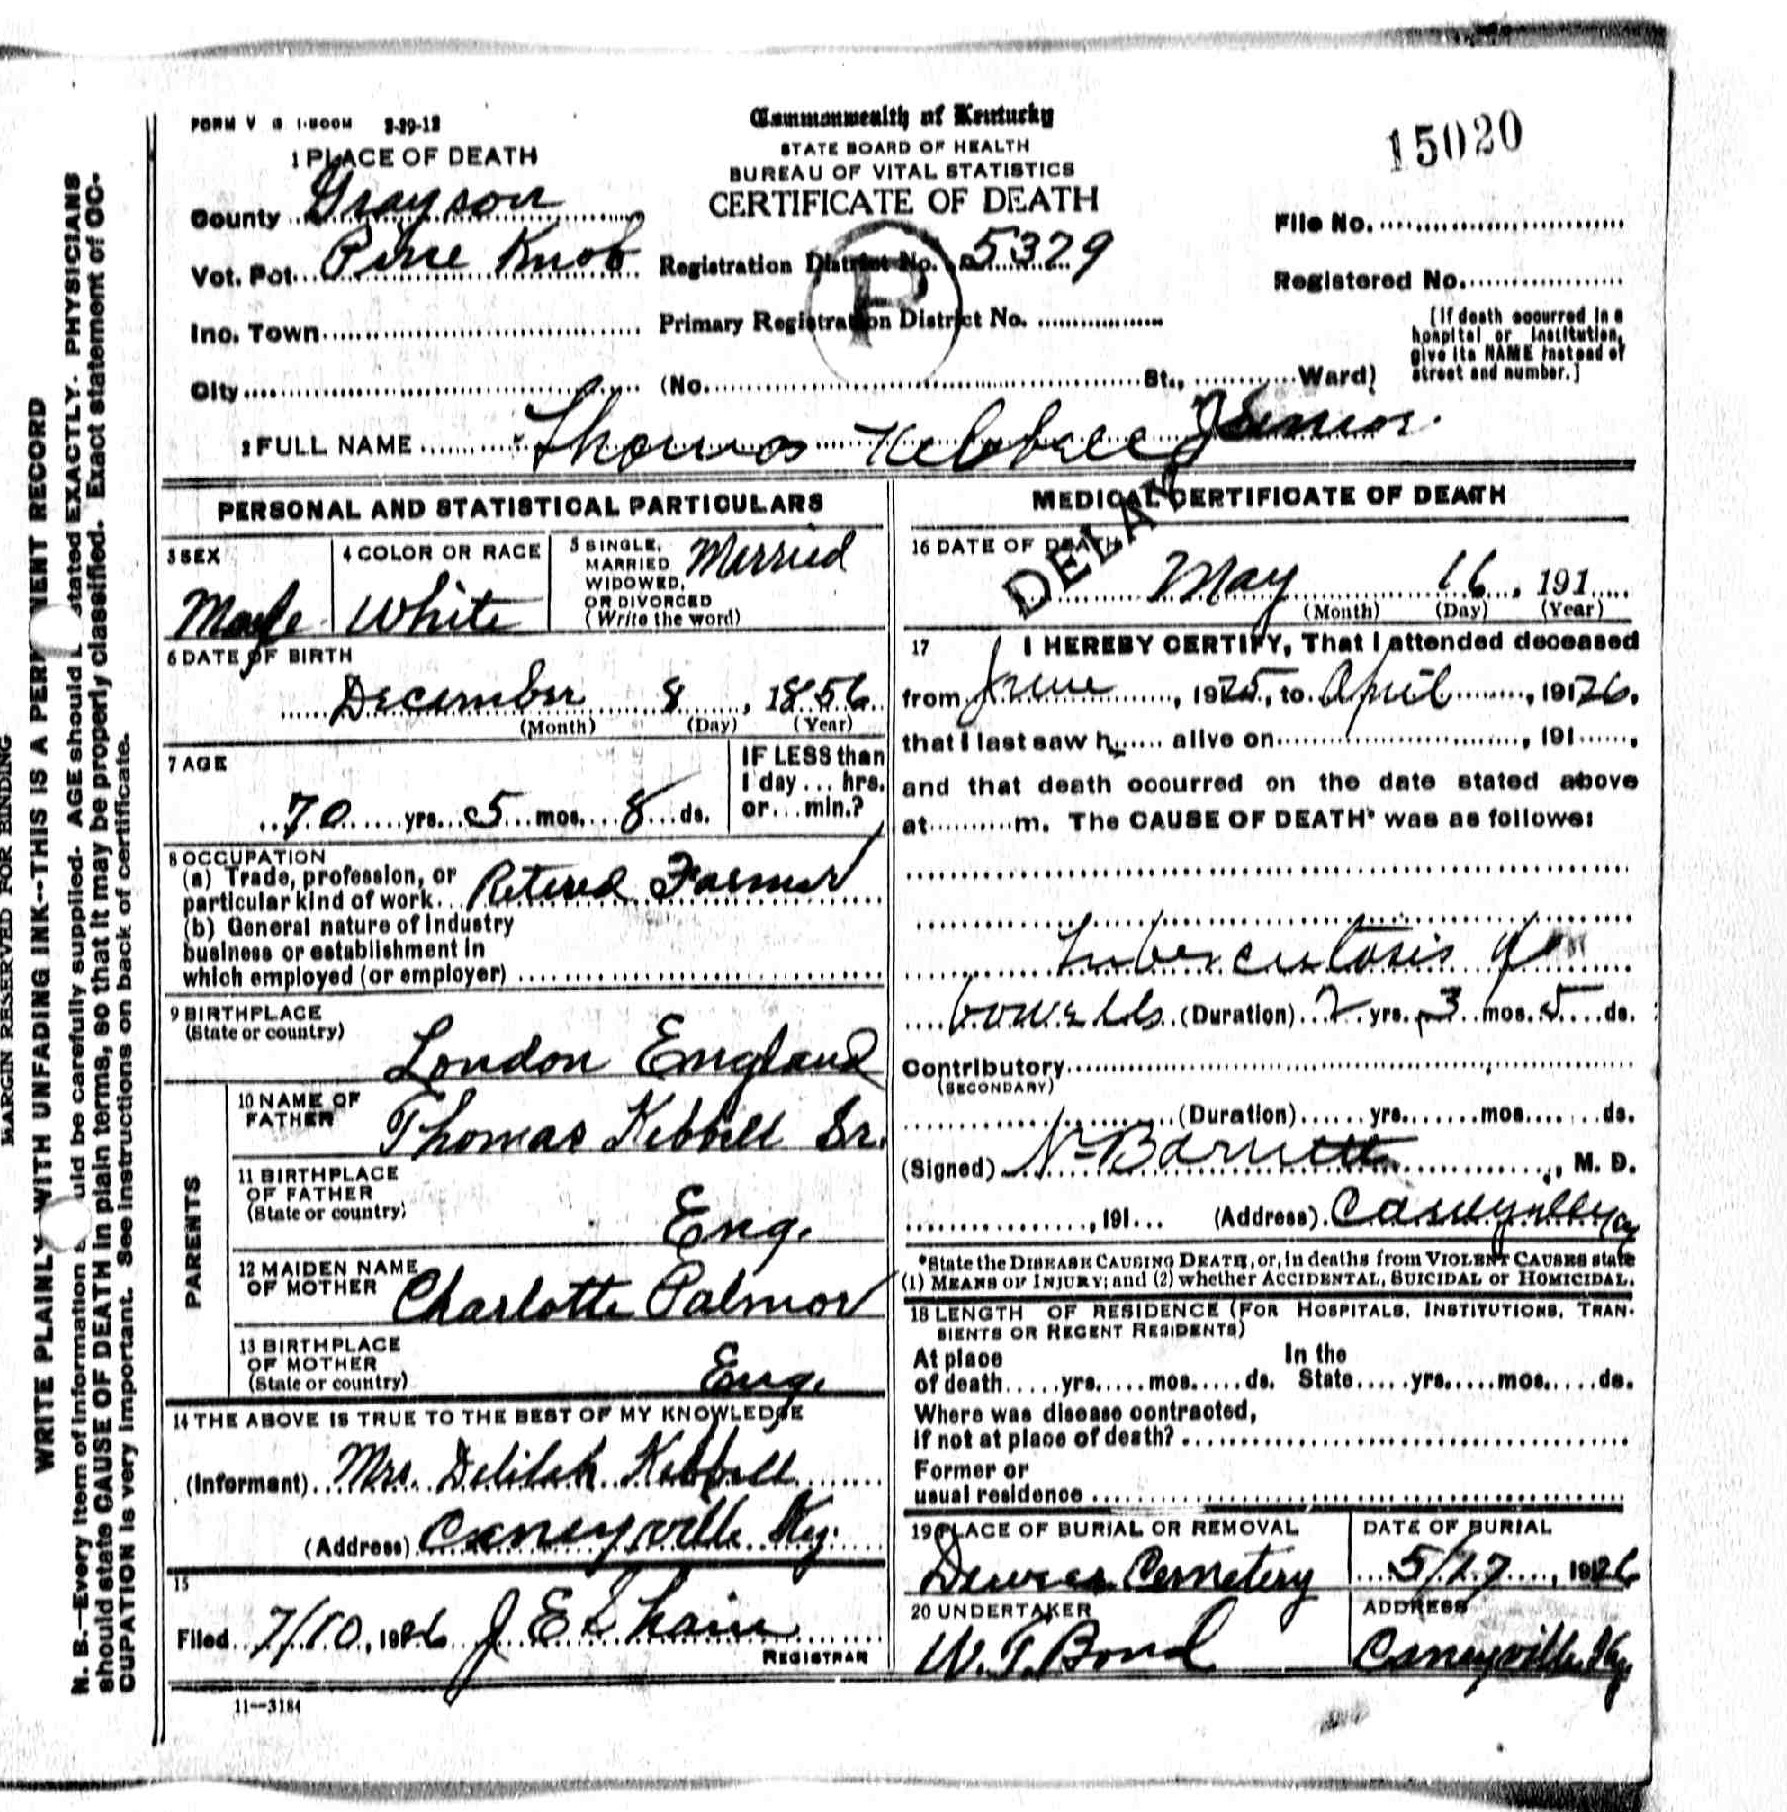 FORM V S 1-500M 3-29-12
Commonwealth of Kentucky
STATE BOARD OF HEALTH
BUREAU OF VITAL STATISTICS
CERTIFICATE OF DEATH
15020
1 PLACE OF DEATH
County Grayson
Vot. Pct. Pine Knob
Registration District No. 5379
File No.
Registered No.
Inc. Town
Primary Registration District No.
P
City (No. St., Ward)
[If death occurred in a
hospital or institution,
give its NAME instead of
street and number.]
2 FULL NAME Thomas Kebbell Junior
PERSONAL AND STATISTICAL PARTICULARS
3 SEX
Male
4 COLOR OR RACE
White
5 SINGLE,
MARRIED
WIDOWED,
OR DIVORCED
(Write the word)
Married
6 DATE OF BIRTH
December 8, 1856
(Month) (Day) (Year)
7 AGE
70 yrs. 5 mos. 8 ds.
IF LESS than
1 day ... hrs.
or ... min.?
8 OCCUPATION
(a) Trade, profession, or
particular kind of work Retired Farmer
(b) General nature of industry
business or establishment in
which employed (or employer)
9 BIRTHPLACE
(State or country)
London England
PARENTS
10 NAME OF
FATHER
Thomas Kebbell Sr.
11 BIRTHPLACE
OF FATHER
(State or country)
Eng.
12 MAIDEN NAME
OF MOTHER
Charlotte Palmor
13 BIRTHPLACE
OF MOTHER
(State or country)
Eng.
14 THE ABOVE IS TRUE TO THE BEST OF MY KNOWLEDGE
(Informant) Mrs. Delilah Kebbell
(Address) Caneyville Ky.
15
Filed 7/10, 1926 J E Shain
REGISTRAR
11--3184
MEDICAL CERTIFICATE OF DEATH
DELAY
16 DATE OF DEATH
May 16, 191
(Month) (Day) (Year)
17 I HEREBY CERTIFY, That I attended deceased
from June, 1925, to April, 19126,
that I last saw h alive on , 191 ,
and that death occurred on the date stated above
at m. The CAUSE OF DEATH* was as follows:
Tuberculosis of
bowells (Duration) 2 yrs. 3 mos. 5 ds.
Contributory
(SECONDARY)
(Duration) yrs. mos. ds.
(Signed) Barnett, M. D.
, 191 (Address)
*State the DISEASE CAUSING DEATH, or, in deaths from VIOLENT CAUSES state
(1) MEANS OF INJURY; and (2) whether ACCIDENTAL, SUICIDAL or HOMICIDAL.
18 LENGTH OF RESIDENCE (FOR HOSPITALS, INSTITUTIONS, TRAN-
SIENTS OR RECENT RESIDENTS)
At place In the
of death yrs. mos. ds. State yrs. mos. ds.
Where was disease contracted,
if not at place of death?
Former or
usual residence
19 PLACE OF BURIAL OR REMOVAL
Cemetery
DATE OF BURIAL
5/27, 1926
20 UNDERTAKER
W. T. Bond
ADDRESS
Caneyville Ky.
MARGIN RESERVED FOR BINDING
WRITE PLAINLY WITH UNFADING INK--THIS IS A PERMANENT RECORD
N. B.--Every item of information should be carefully supplied. AGE should be stated EXACTLY. PHYSICIANS
should state CAUSE OF DEATH in plain terms, so that it may be properly classified. Exact statement of OC-
CUPATION is very important. See instructions on back of certificate.